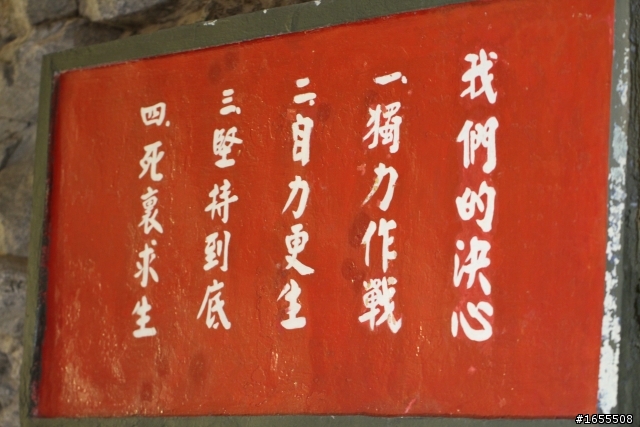 我們的決心
一、獨力作戰
二、自力更生
三、堅持到底
四、死裏求生
#1655508